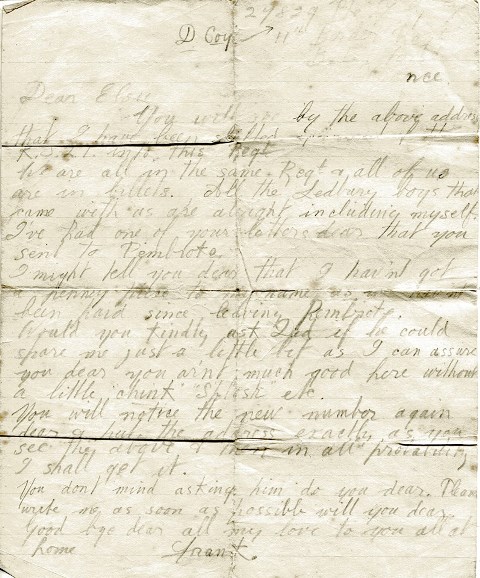 29829
D Coy 11th
nce.
Dear Elsie
You will see by the above address
that I have been shifted again
K.S.L.I. into this Regt
We are all in the same Regt & all of us
are in billets. All the Ledbury boys that
came with us are alright, including myself.
I've had one of your letters dear that you
sent to Pembroke.
I might tell you dear that I hav'nt got
a penny piece to my name as we hav'nt
been paid since leaving Pembroke.
Would you kindly ask Dad if he could
spare me just a little bit as I can assure
you dear you ar'nt much good here without
a little "chink" "Splosh" etc.
You will notice the new number again
dear & put the address exactly as you
see the above & then in all probability
I shall get it.
You dont mind asking him do you dear. Please
write me as soon as possible will you dear
Good bye dear all my love to you all at
home Frank